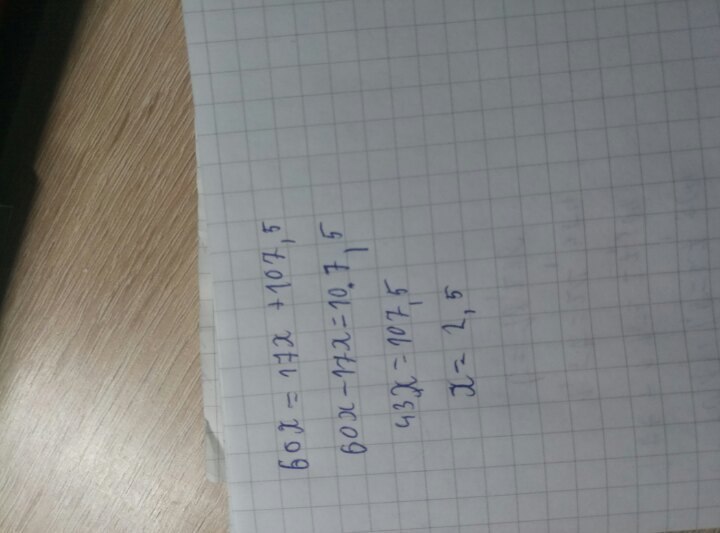 60x = 17x + 107,5
60x - 17x = 10.7,5
43x = 107,5
x = 2,5